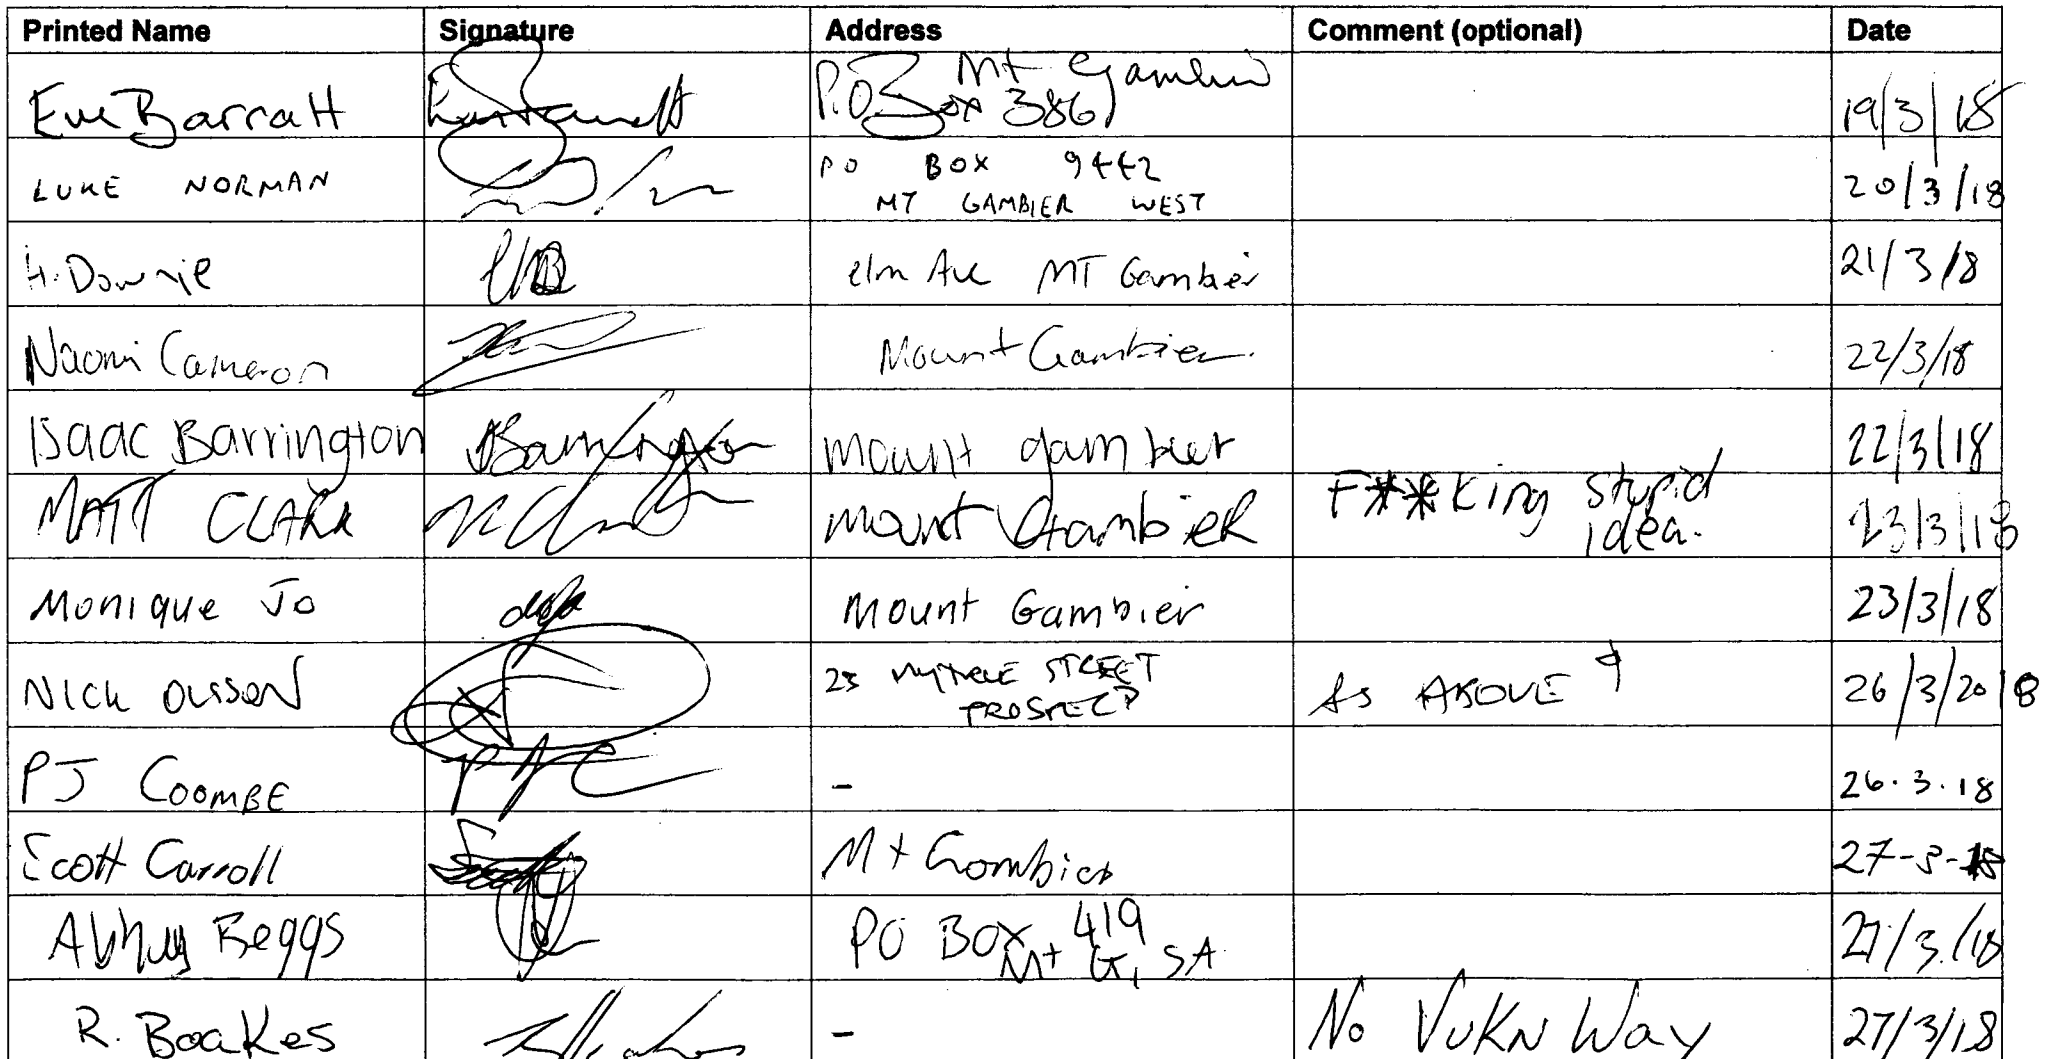 Printed Name Signature Address Comment (optional) Date
Eve Barratt P.O Box 3861 Mt Gambier 19/3/18
LUKE NORMAN PO BOX 9442 20/3/18
MT GAMBIER WEST
H. Downie elm Ave MT Gambier 21/3/18
Naomi Cameron Mount Gambier. 22/3/18
Isaac Barrington Barrington mount gambier 22/3/18
MATT CLARK mount Gambier F**king stupid 23/3/18
idea.
Monique Jo Mount Gambier 23/3/18
NICK STREET As ABOVE 26/3/2018
PROSPECT
PJ COOMBE - 26.3.18
Scott Carroll Mt Gambier 27-3-18
Beggs PO BOX 419 27/3/18
Mt G, SA
R. Boakes - No VUKN Way 27/3/18